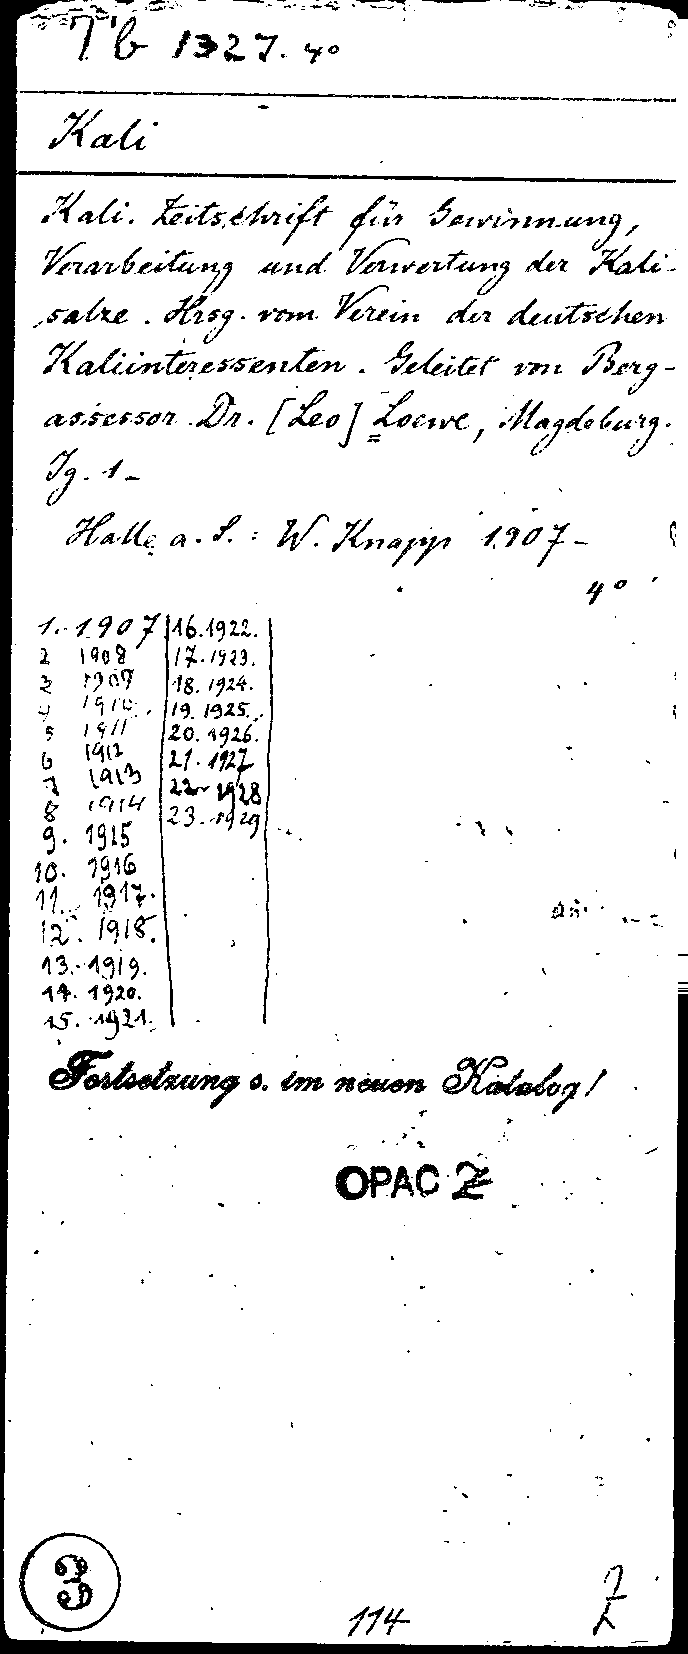 Tb 1327. 4°
Kali
Kali. Zeitschrift für Gewinnung,
Verarbeitung und Verwertung der Kali-
salze. Hrsg. vom Verein der deutschen
Kaliinteressenten. Geleitet von Berg-
assessor Dr. [Leo] Loewe, Magdeburg.
Jg. 1-
Halle a. S.: W. Knapp 1907-
4°
1. 1907 16. 1922.
2 1908 17. 1923.
3 1909 18. 1924.
4 1910. 19. 1925.
5 1911 20. 1926.
6 1912 21. 1927
7 1913 22. 1928
8 1914 23. 1929
9. 1915
10. 1916
11. 1917.
12. 1918.
13. 1919.
14. 1920.
15. 1921.
Fortsetzung s. im neuen Katalog!
OPAC Z
3
114
Z